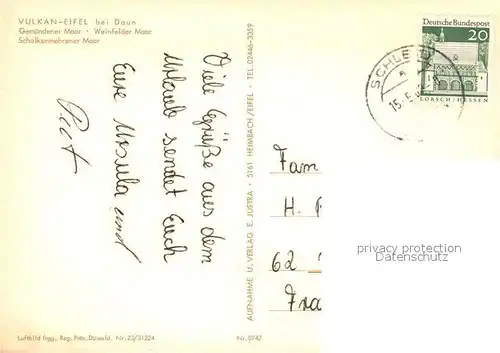 VULKAN-EIFEL bei Daun
Gemündener Maar · Weinfelder Maar
Schalkenmehrener Maar
Viele Grüße aus dem
Urlaub sendet Euch
Eure Ursula und
AUFNAHME U. VERLAG E. JUSTRA · 5161 HEIMBACH/EIFEL · TEL. 02446-3359
Deutsche Bundespost
20
LORSCH/HESSEN
SCHLE
15.-5
Fam
H.
62
Fra
privacy protection
Datenschutz
Luftbild frgg. Reg. Präs. Düsseld. Nr. 23/31224
Nr. 0747